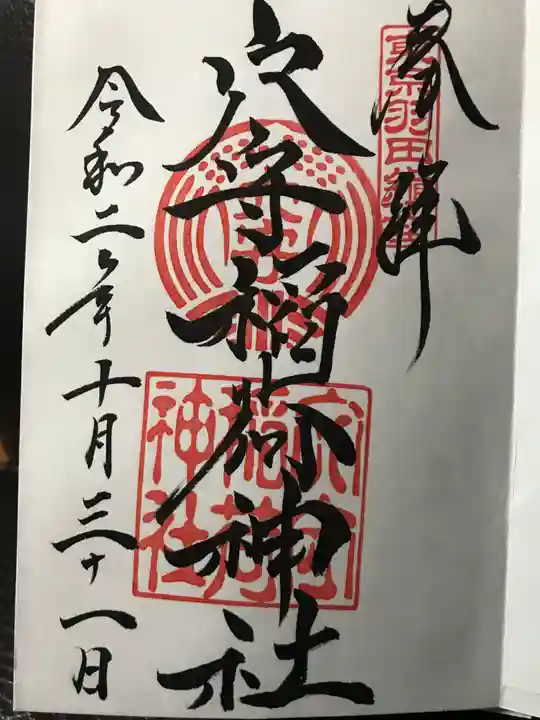 奉拝
東京羽田鎮座
穴守稲荷神社
穴守
稲荷
神社
令和二年十月三十一日